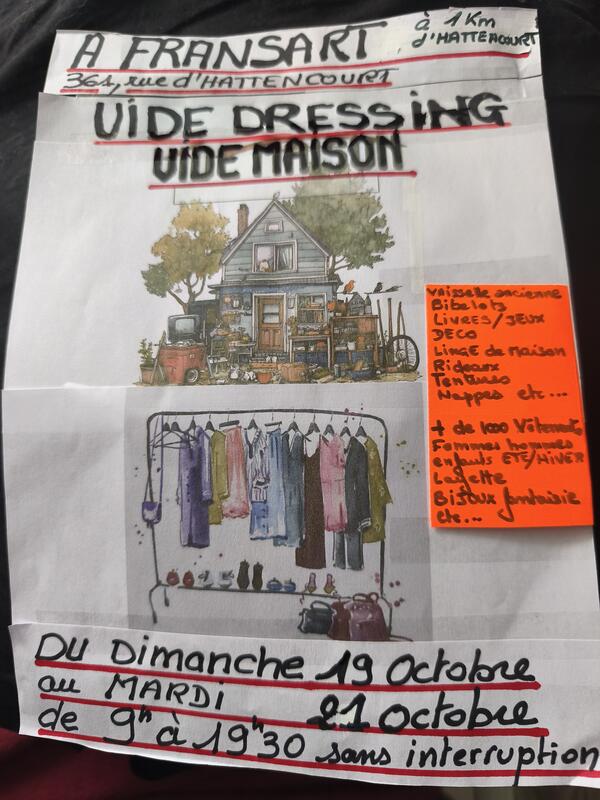 A FRANSART
à 1 Km
d'HATTENCOURT
361, rue d'HATTENCOURT
VIDE DRESSING
VIDE MAISON
Vaisselle ancienne
Bibelots
LIVRES/JEUX
DECO
LINGE de Maison
Rideaux
Tentures
Nappes etc...
+ de 1000 Vêtements
Femmes hommes
enfants ETE/HIVER
Layette
BIJOUX fantaisie
etc...
DU Dimanche 19 Octobre
au MARDI 21 Octobre
de 9h à 19h30 sans interruption